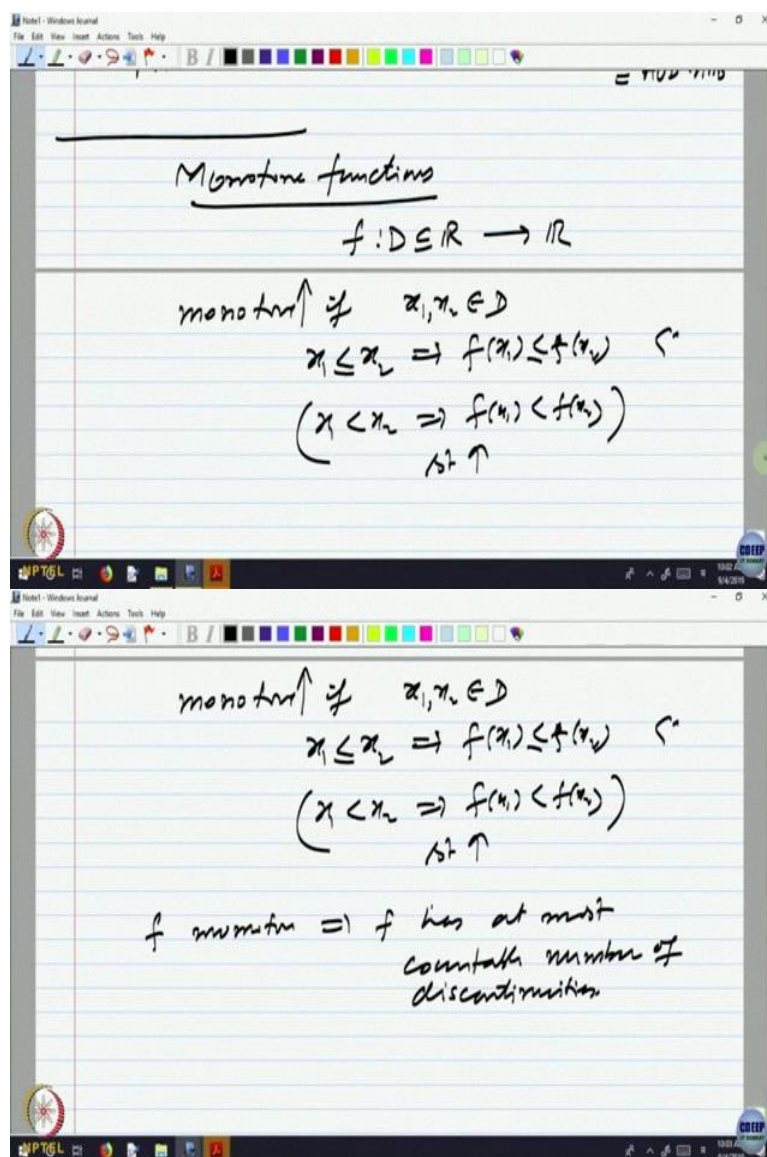 Note1 - Windows Journal
File Edit View Insert Actions Tools Help
B I
Monotone functions
f : D ⊆ ℝ → ℝ
monotone ↑ if x₁, x₂ ∈ D
x₁ ≤ x₂ ⇒ f(x₁) ≤ f(x₂)
(x₁ < x₂ ⇒ f(x₁) < f(x₂))
st ↑
NPTEL
CDEEP
10:02
9/4/2019
Note1 - Windows Journal
File Edit View Insert Actions Tools Help
B I
monotone ↑ if x₁, x₂ ∈ D
x₁ ≤ x₂ ⇒ f(x₁) ≤ f(x₂)
(x₁ < x₂ ⇒ f(x₁) < f(x₂))
st ↑
f monotone ⇒ f has at most
countable number of
discontinuities.
NPTEL
CDEEP
10:03